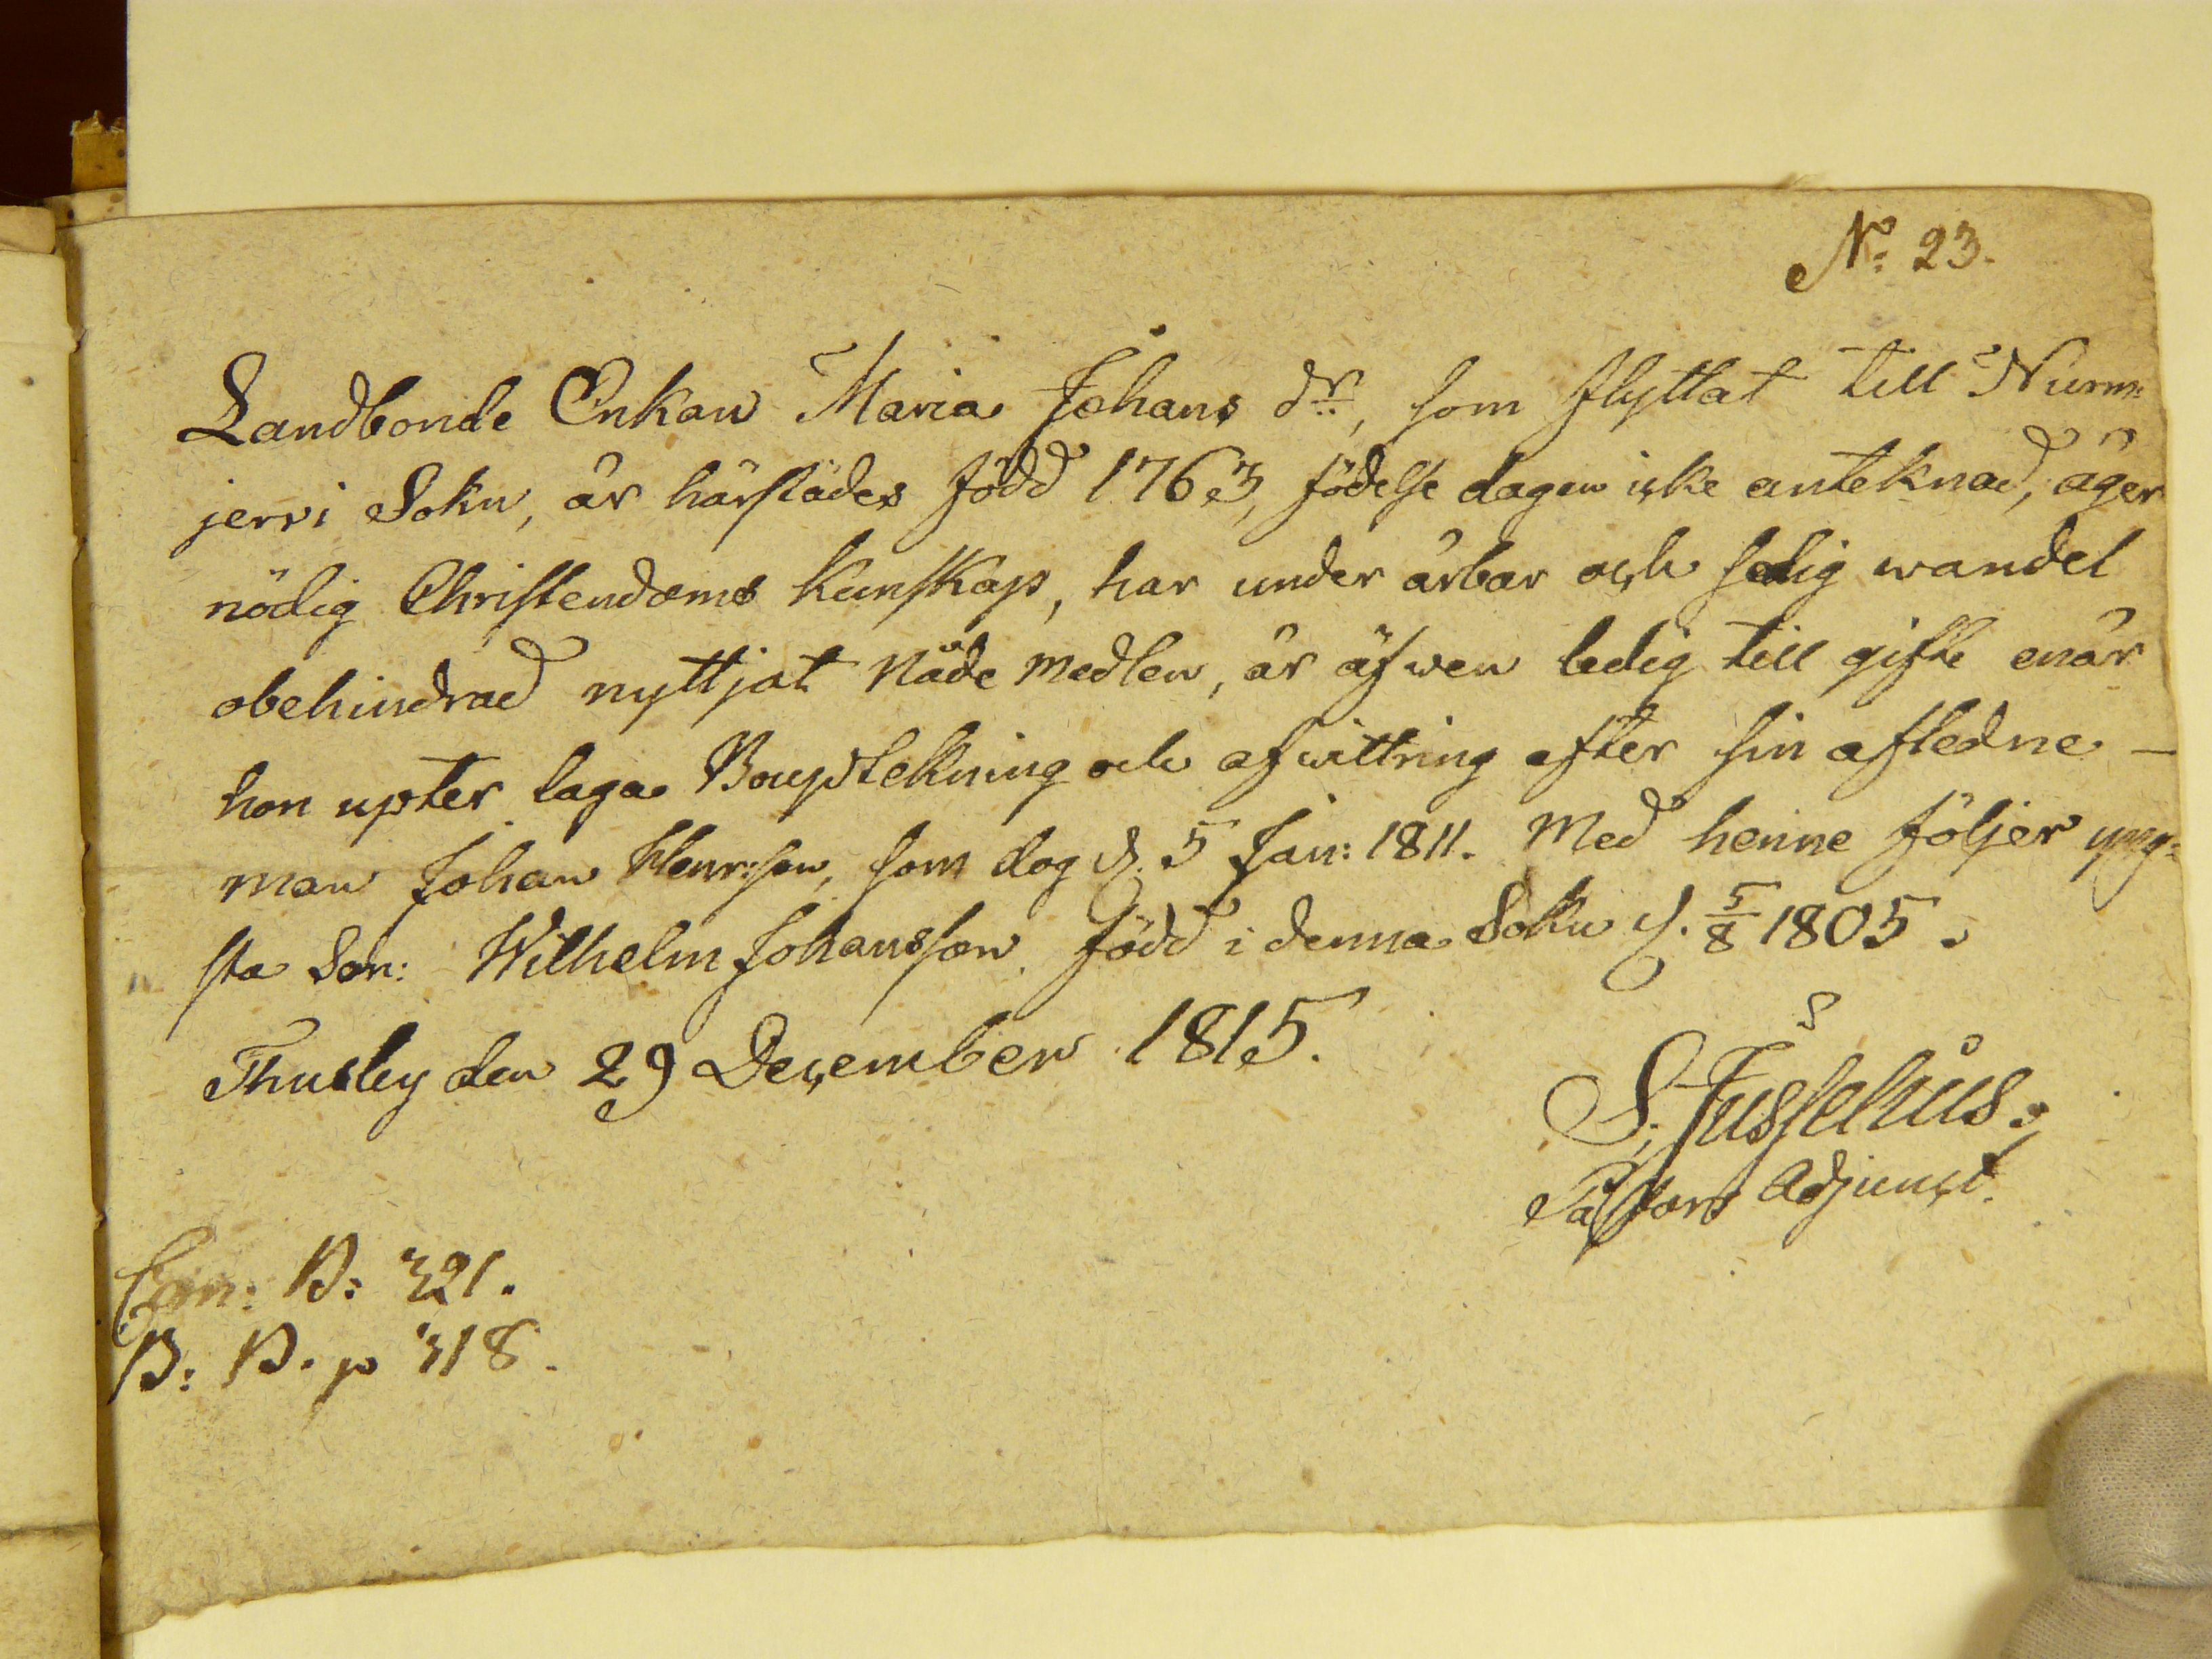 No: 23.
Landbonde Enkan Maria Johans dr., som flyttat till Nurm:
jervi Sokn, är härstädes född 1763, födelse dagen icke anteknad, äger
nödig Christendoms Kunskap, har under ärbar och sedig wandel
obehindrad nyttjat Nåde medlen, är äfwen ledig till gifte enär
hon upter laga Boupstekning och afwittring efter sin afledne –
man Johan Henr:son, som dog d. 5 Jan: 1811. Med henne följer yng:
sta Son: Wilhelm Johansson född i denna Sokn d. 5/8 1805.
Thusby den 29 December 1815.
Pastors Adjunct.
B: 321.
B: B. p 318.